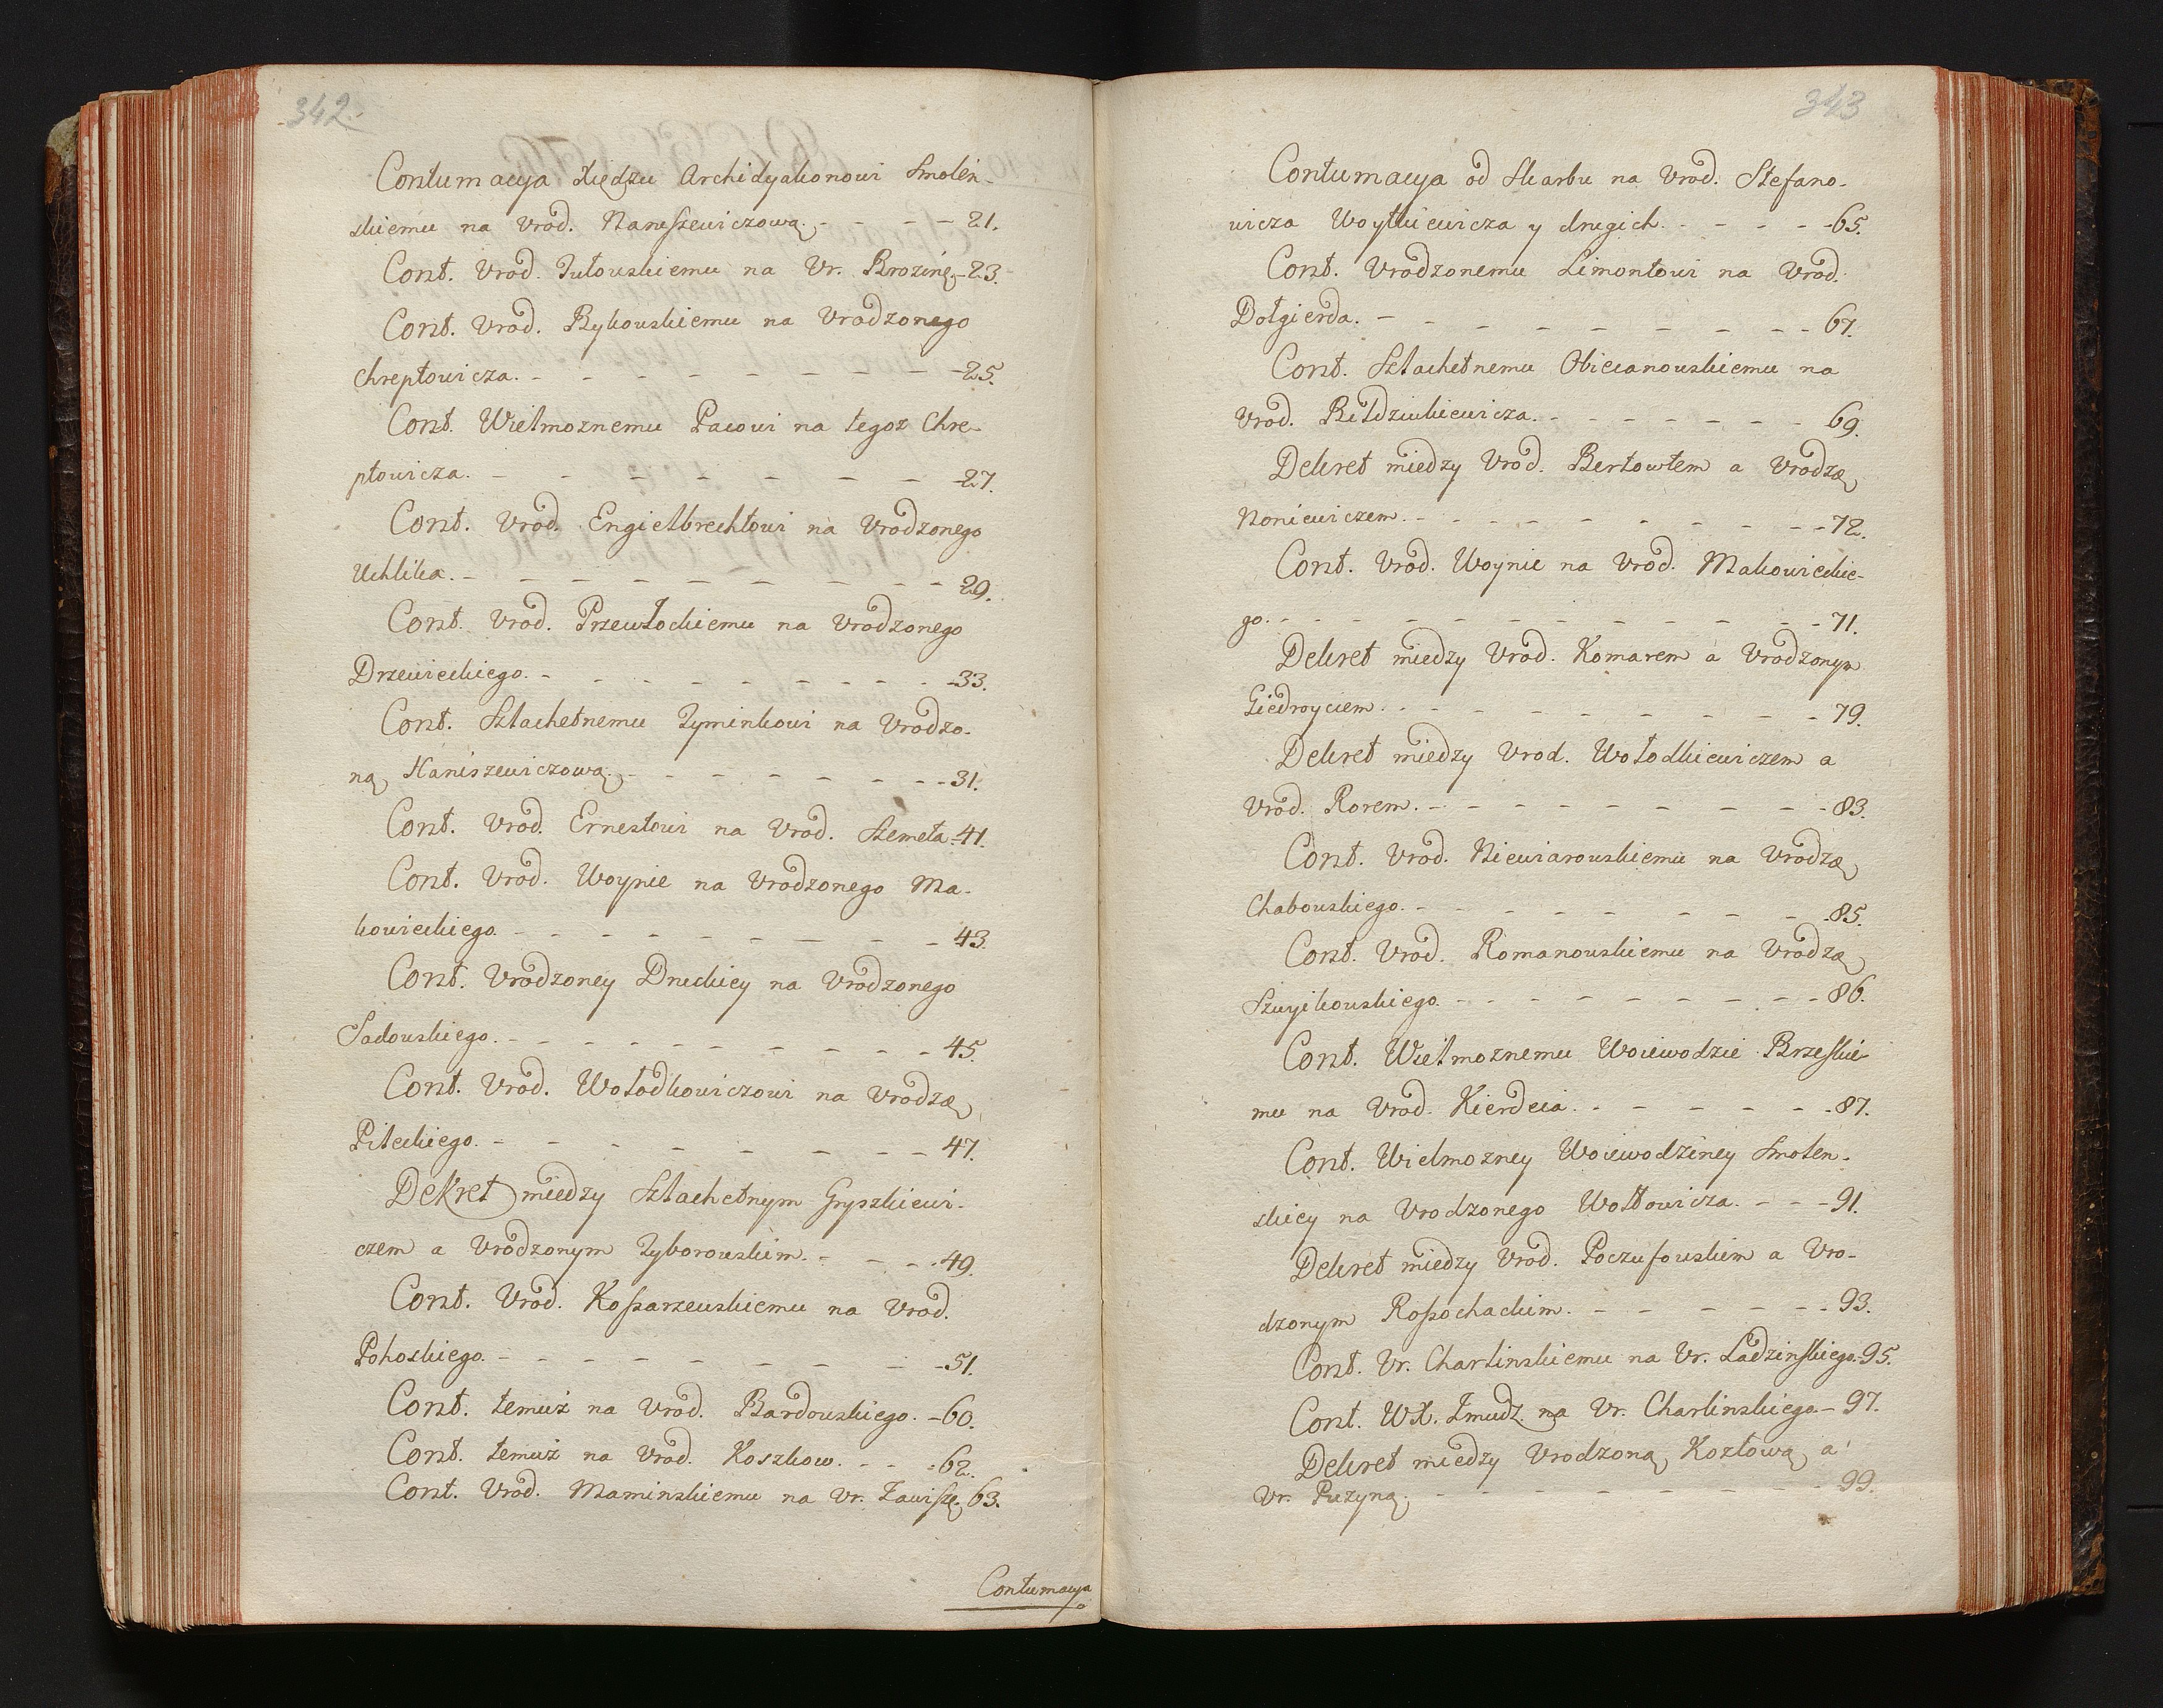 342.
Contumacya Xiędzu Archidyakonowi Smoleń-
skiemu na Vrod. Naruszewiczową. - - - - 21.
Cont. Vrod. Jutowskiemu na Vr. Brozinę - 23.
Cont. Vrod. Bykowskiemu na Vrodzonego
Chreptowicza. - - - - - - - - 25.
Cont. Wielmoznemu Pacowi na tegoz Chre-
ptowicza. - - - - - - - 27.
Cont. Vrod. Engielbrechtowi na Vrodzonego
Uchlika. - - - - - - - - - 29.
Cont. Vrod. Przewłockiemu na Vrodzonego
Drzewieckiego. - - - - - - - - 33.
Cont. Szlachetnemu Zyminkowi na Vrodzo-
ną Haniszewiczową. - - - - - - - 31.
Cont. Vrod. Ernestowi na Vrod. Szemeta. 41.
Cont. Vrod. Woynie na Vrodzonego Ma-
kowieckiego. - - - - - - - - - 43.
Cont. Vrodzoney Druckiey na Vrodzonego
Sadowskiego. - - - - - - - - - 45.
Cont. Vrod. Wołodkowiczowi na Vrodzę
Pileckiego. - - - - - - - - 47.
Dekret miedzy Szlachetnym Gryszkiewi-
czem a Vrodzonym Zyborowskim. - - - - 49.
Cont. Vrod. Kossarzewskiemu na Vrod.
Pohoskiego. - - - - - - - - - 51.
Cont. temuż na Vrod. Bardowskiego. - 60.
Cont. temuż na Vrod. Koszkow. - - - 62.
Cont. Vrod. Maminskiemu na Vr. Zawiszę. 63.
Contumacya
343
Contumacya od Skarbu na Vrod. Stefano-
wicza Woytkiewicza y drugich. - - - - 65.
Cont. Vrodzonemu Limontowi na Vrod.
Dołgierda. - - - - - - - - - 67.
Cont. Szlachetnemu Obiecanowskiemu na
Vrod. Bildziukiewicza. - - - - - - 69.
Dekret miedzy Vrod. Bertowtem a Vrodzę
Noniewiczem. - - - - - - - - - 72.
Cont. Vrod. Woynie na Vrod. Makowieckie-
go. - - - - - - - - - - - 71.
Dekret miedzy Vrod. Komarem a Vrodzonym
Giedroyciem. - - - - - - - - - 79.
Dekret miedzy Vrod. Wołodkiewiczem a
Vrod. Rorem. - - - - - - - - - 83.
Cont. Vrod. Niewiarowskiemu na Vrodzę
Chabowskiego. - - - - - - - - 85.
Cont. Vrod. Romanowskiemu na Vrodzę
Szuyikowskiego. - - - - - - - - 86.
Cont. Wielmoznemu Woiewodzie Brzeskie
mu na Vrod. Kierdeia. - - - - - - 87.
Cont. Wielmozney Woiewodziney Smolen-
skiey na Vrodzonego Wołłowicza. - - - 91.
Dekret miedzy Vrod. Poczufowskim a Vro-
dzonym Rossochackim. - - - - - - 93.
Cont. Vr. Charlinskiemu na Vr. Ładzinskiego. 95.
Cont. WX. Zmudz. na Vr. Charlinskiego - 97.
Dekret miedzy Vrodzoną Kozłową a
Vr. Puzyną. - - - - - - - - 99.